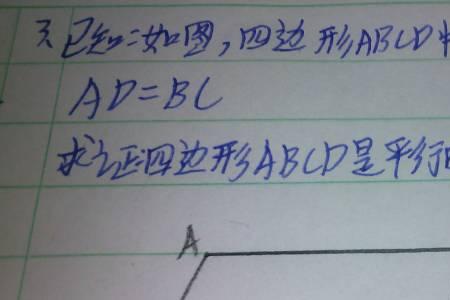 3. 已知:如图,四边形ABCD中
AD=BC
求证:四边形ABCD是平行四
A